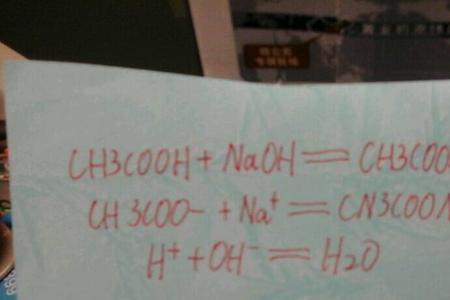 CH3COOH + NaOH = CH3COO
CH3COO- + Na⁺ = CN3COON
H⁺ + OH⁻ = H2O